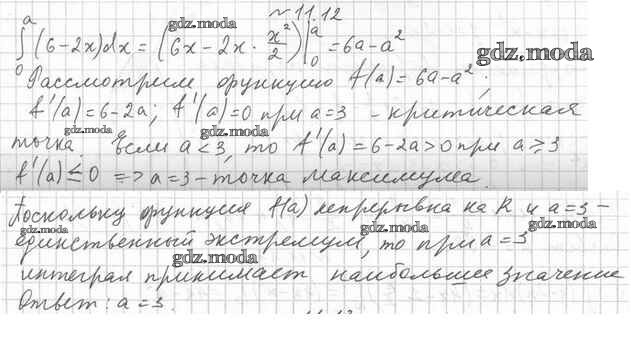 № 11.12
∫₀ᵃ (6-2x)dx = (6x - 2x · x²/2)|₀ᵃ = 6a - a²
Рассмотрим функцию f(a) = 6a - a²;
f'(a) = 6 - 2a; f'(a) = 0 при a = 3 - критическая
точка. Если a < 3, то f'(a) = 6 - 2a > 0 при a ⩾ 3
f'(a) ≤ 0 => a = 3 - точка максимума.
Поскольку функция f(a) непрерывна на R и a = 3 -
единственный экстремум, то при a = 3
интеграл принимает наибольшее значение
Ответ: a = 3.
gdz.moda
gdz.moda
gdz.moda
gdz.moda
gdz.moda
gdz.moda
gdz.moda
gdz.moda